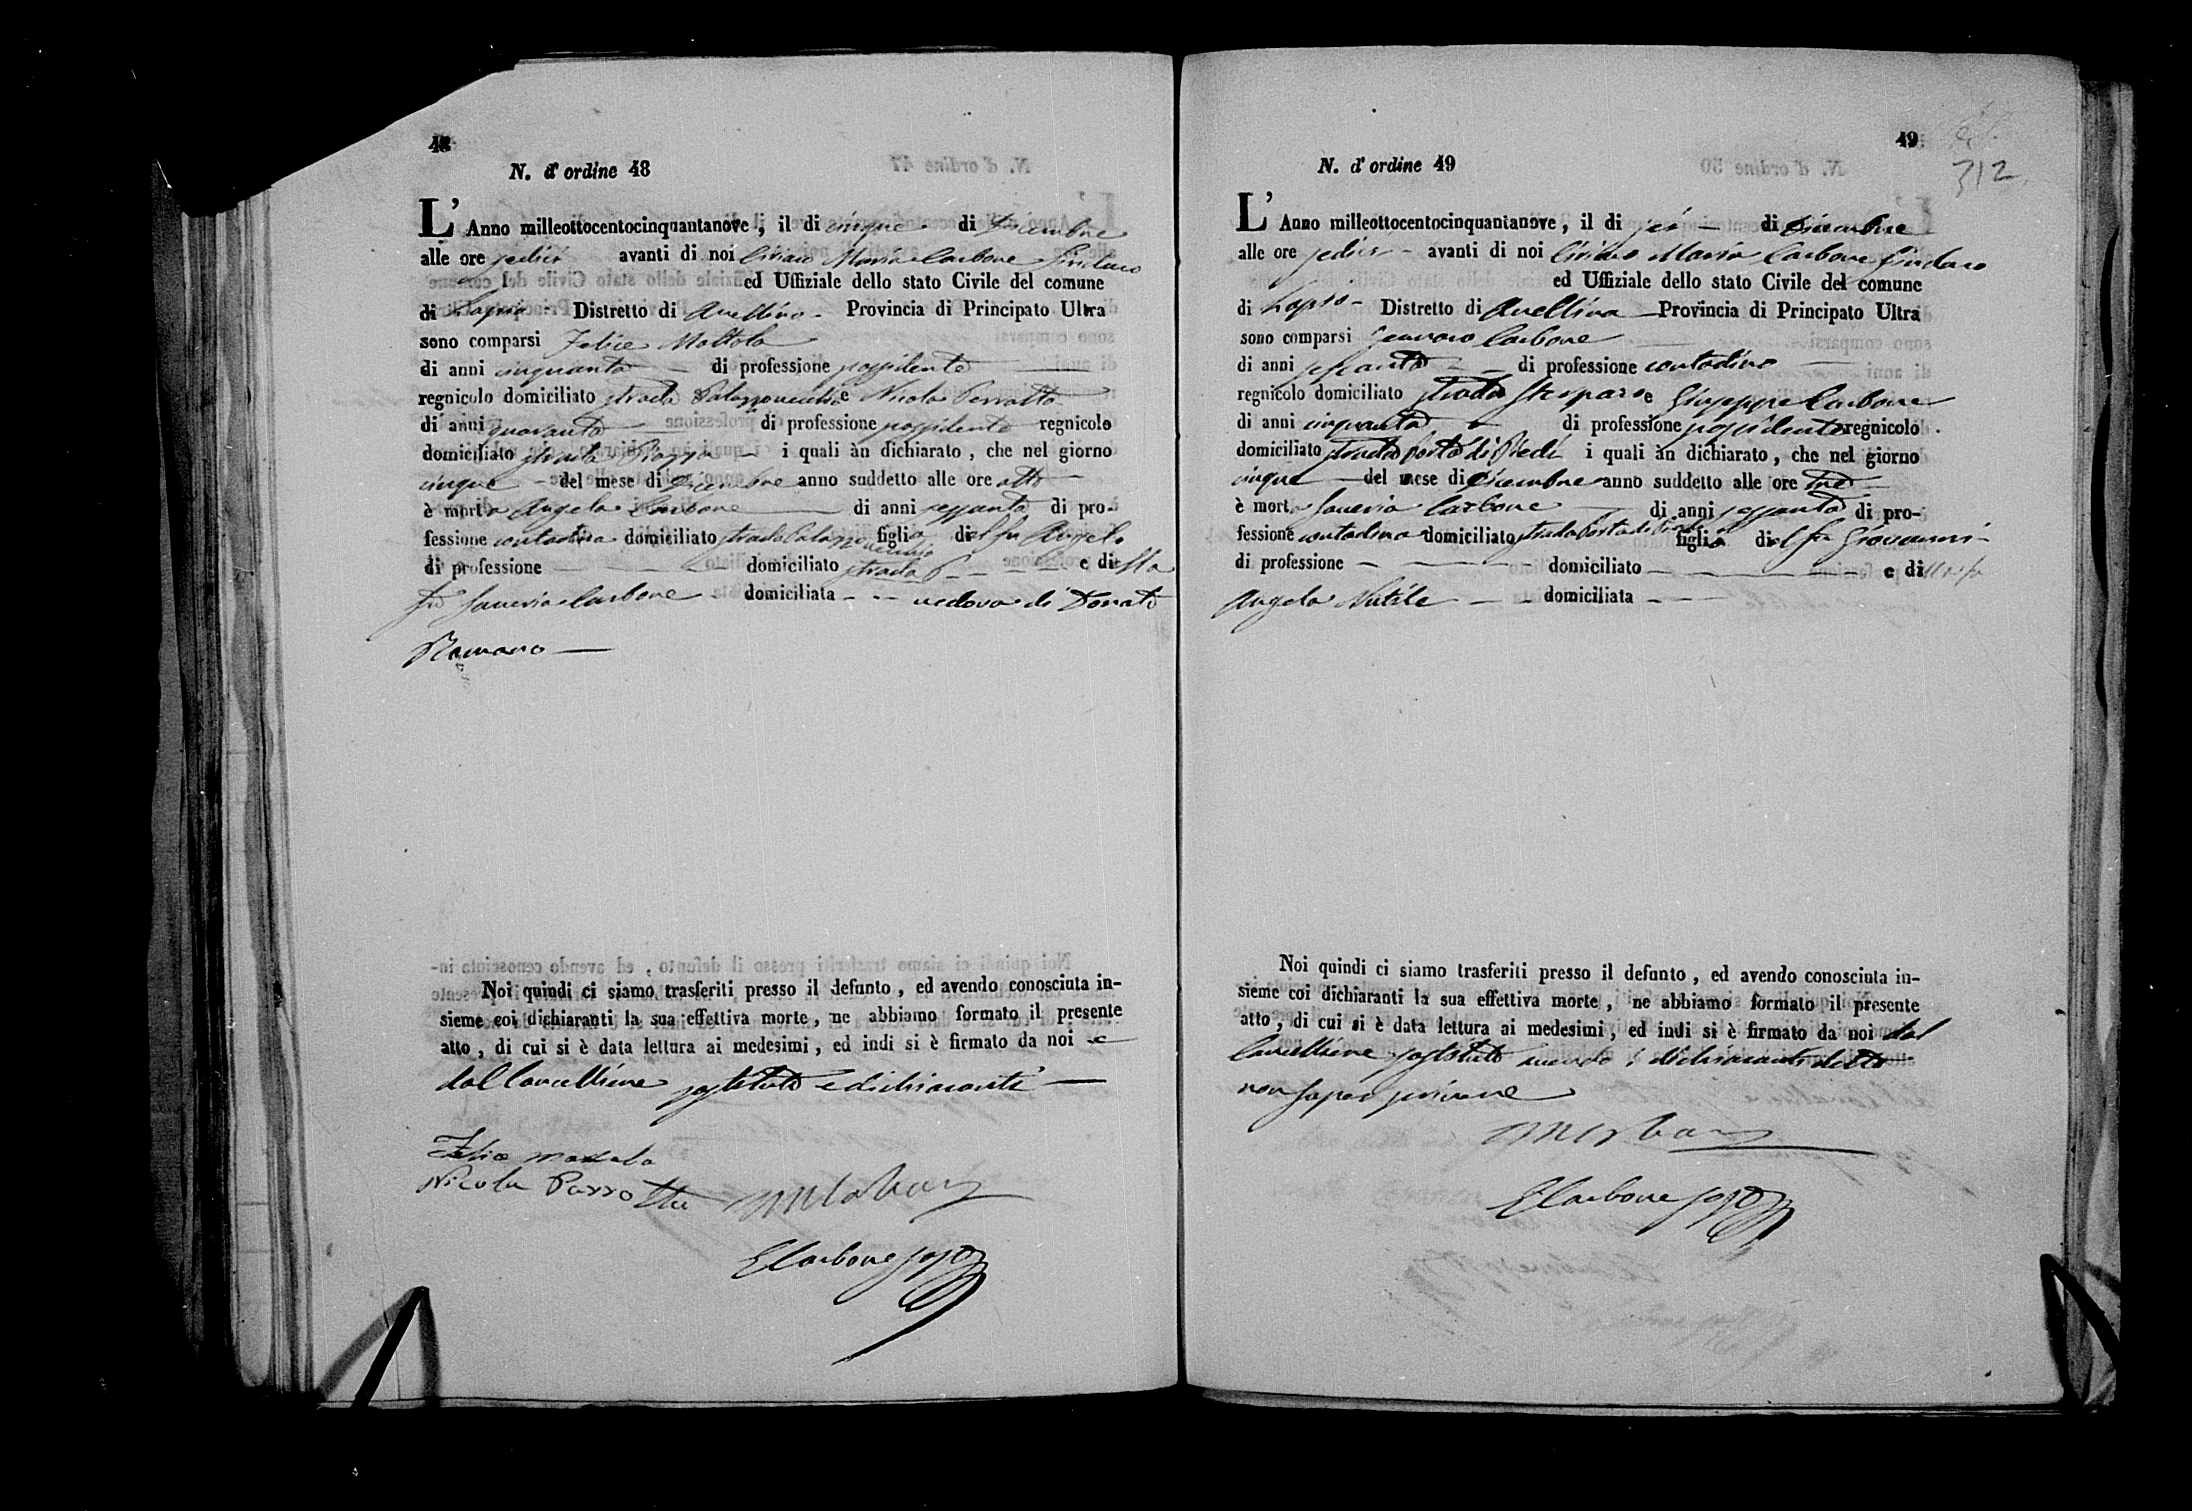 48
N. d'ordine 48
L'Anno milleottocentocinquantanove, il di cinque di Dicembre
alle ore sedici avanti di noi Ciriaco Maria Carbone Sindaco
ed Uffiziale dello stato Civile del comune
di Lapio Distretto di Avellino Provincia di Principato Ultra
sono comparsi Felice Mottola
di anni cinquanta di professione possidente
regnicolo domiciliato strada Palazzovecchio e Nicola Perrotta
di anni quaranta di professione possidente regnicolo
domiciliato strada Piazza i quali àn dichiarato, che nel giorno
cinque del mese di Dicembre anno suddetto alle ore otto
è morta Angela Carbone di anni sessanta di pro-
fessione contadina domiciliato strada Palazzovecchio figlia del fu Angelo
di professione domiciliato strada P e della
fu Saveria Carbone domiciliata vedova di Donato
Romano
Noi quindi ci siamo trasferiti presso il defunto, ed avendo conosciuta in-
sieme coi dichiaranti la sua effettiva morte, ne abbiamo formato il presente
atto, di cui si è data lettura ai medesimi, ed indi si è firmato da noi e
dal Cancelliere sostituto e dichiaranti
Felice Mottola
Nicola Parrotta
CMCarbone
ECarbone sosto
49
312
N. d'ordine 49
L'Anno milleottocentocinquantanove, il di sei di Dicembre
alle ore sedici avanti di noi Ciriaco Maria Carbone Sindaco
ed Uffiziale dello stato Civile del comune
di Lapio Distretto di Avellino Provincia di Principato Ultra
sono comparsi Gennaro Carbone
di anni sessanta di professione contadino
regnicolo domiciliato strada e Giuseppe Carbone
di anni cinquanta di professione possidente regnicolo
domiciliato strada Porta di Piedi i quali àn dichiarato, che nel giorno
cinque del mese di Dicembre anno suddetto alle ore tre
è morta Saveria Carbone di anni sessanta di pro-
fessione contadina domiciliato strada Porta di Piedi figlia del fu Giovanni
di professione domiciliato e di
Angela Nutile domiciliata
Noi quindi ci siamo trasferiti presso il defunto, ed avendo conosciuta in-
sieme coi dichiaranti la sua effettiva morte, ne abbiamo formato il presente
atto, di cui si è data lettura ai medesimi, ed indi si è firmato da noi dal
Cancelliere sostituto avendo i dichiaranti detto
non saper scrivere
CMCarbone
ECarbone sosto